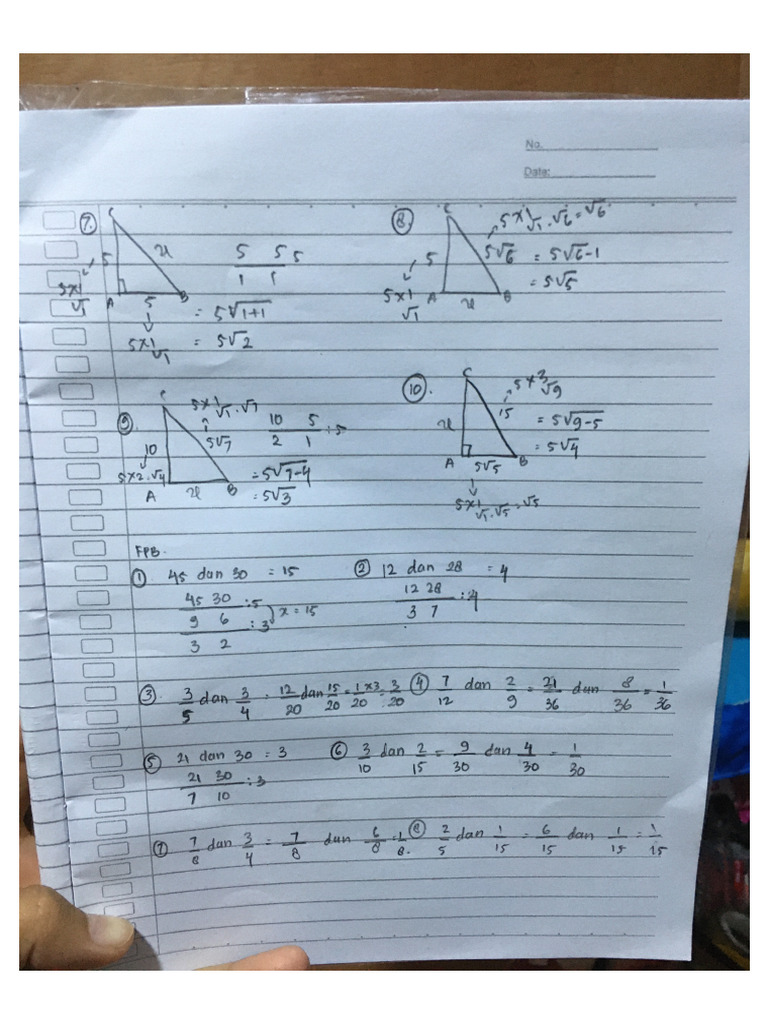 No.
Date:
7.
C
5
x
A
5
B
5×1
√1
5×1
√1
5 5
1 1
5
= 5√1+1
= 5√2
8.
C
5
5√6
A
x
B
5×1
√1
5×1
√1 · √6 = √6
= 5√6-1
= 5√5
9.
C
10
5√7
A
x
B
5×2 · √4
5×1
√1 · √7
10 5
2 1
:5
= 5√7-4
= 5√3
10.
C
x
15
A
5√5
B
5×3
√9
5×1
√1 · √5 = √5
= 5√9-5
= 5√4
FPB.
1 45 dan 30 = 15
45 30 :5
9 6 :3
3 2
x = 15
2 12 dan 28 = 4
12 28 :4
3 7
3. 3/5 dan 3/4 = 12/20 dan 15/20 = 1×3/20 = 3/20
4 7/12 dan 2/9 = 21/36 dan 8/36 = 1/36
5 21 dan 30 = 3
21 30 :3
7 10
6 3/10 dan 2/15 = 9/30 dan 4/30 = 1/30
7 7/8 dan 3/4 = 7/8 dan 6/8 = 1/8.
8 2/5 dan 1/15 = 6/15 dan 1/15 = 1/15